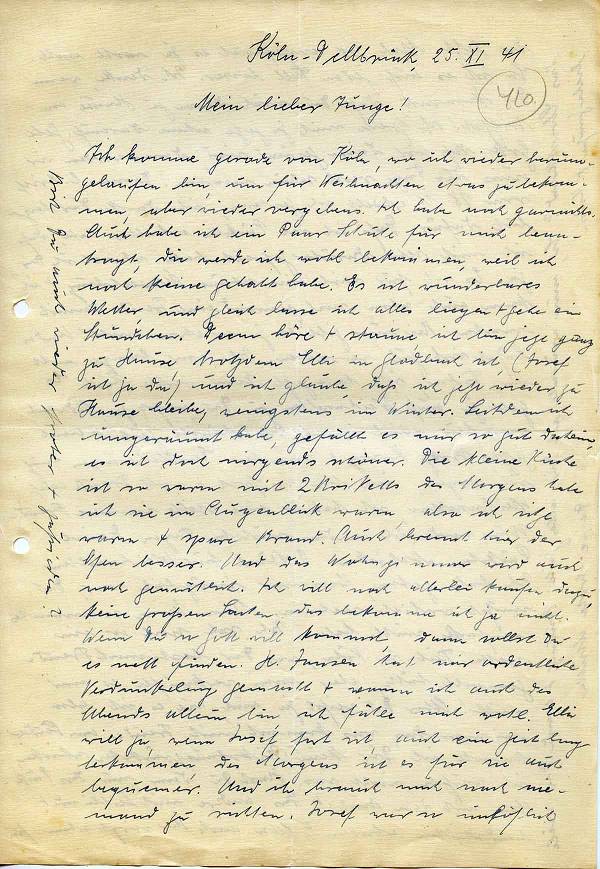 Köln-Dellbrück, 25. XI 41
410.
Mein lieber Junge!
Ich komme gerade von Köln, wo ich wieder herum-
gelaufen bin, um für Weihnachten etwas zu bekom-
men, aber wieder vergebens. Ich habe noch garnichts.
Auch habe ich ein Paar Schuhe für mich bean-
tragt, die werde ich wohl bekommen, weil ich
noch keine gehabt habe. Es ist wunderbares
Wetter und gleich lasse ich alles liegen + gehe ein
Stündchen. Denn höre + staune, ich bin jetzt ganz
zu Hause, trotzdem Elli in Gladbach ist, (Josef
ist ja da) und ich glaube, daß ich jetzt wieder zu
Hause bleibe, wenigstens im Winter. Seitdem ich
umgeräumt habe, gefällt es mir so gut daheim,
es ist doch nirgends schöner. Die kleine Küche
ist so warm mit 2 Briketts des Morgens habe
ich sie im Augenblick warm, also ich sitze
warm + spare Brand. Auch brennt hier der
Ofen besser. Und das Wohnzimmer wird auch
noch gemütlich. Ich will noch allerlei kaufen dazu,
keine großen Sachen, das bekomme ich ja nicht.
Wenn Du so Gott will kommst, dann sollst Du
es nett finden. H. Jansen hat mir ordentliche
Verdunkelung gemacht + wenn ich auch des
Abends allein bin, ich fühle mich wohl. Elli
will ja, wenn Josef fort ist, auch eine Zeit lang
herkommen, des Morgens ist es für sie auch
bequemer. Und ich brauch mich nach nie-
mand zu richten. Josef war so unhöflich
Bist Du auch wieder + zufrieden?